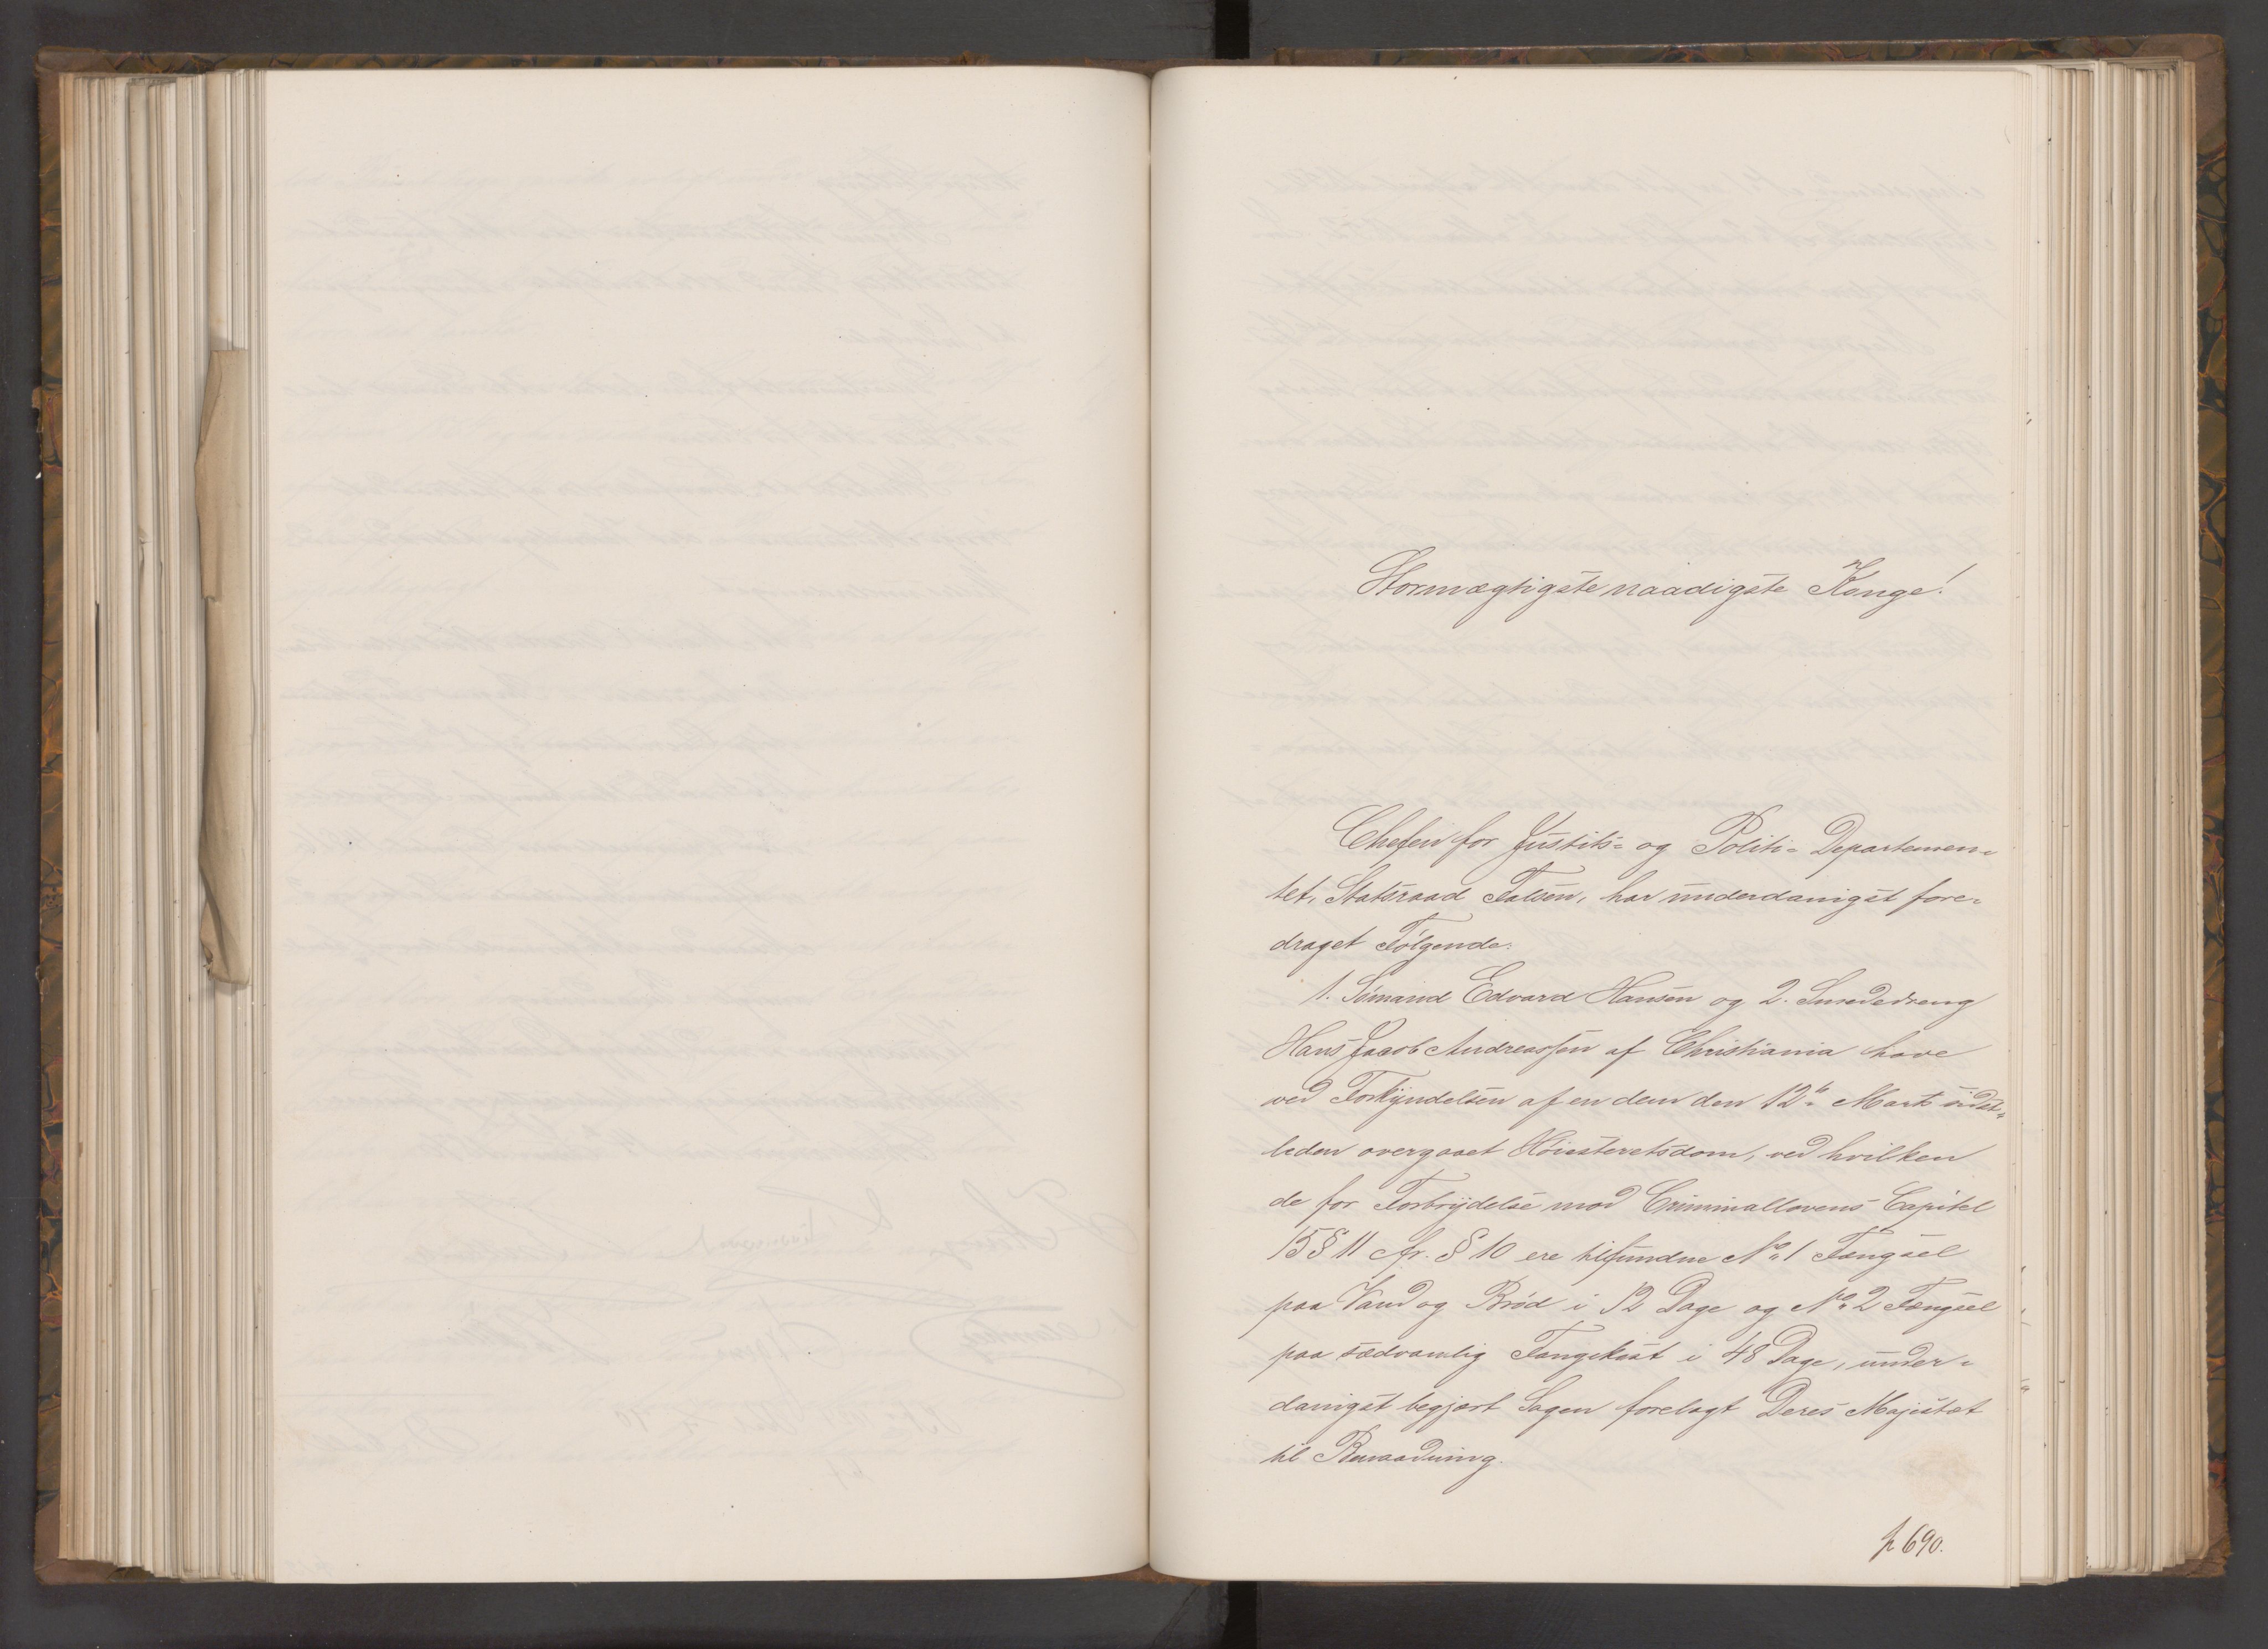 Stormægtigste naadigste Konge!
Chefen for Justits- og Politi-Departemen-
tet, Statsraad Falsen, har underdanigst fore-
draget Følgende:
1. Sømand Edvard Hansen og 2. Smededreng
Hans Jacob Andreassen af Christiania have
ved Forkyndelsen af en dem den 12te Marts sidst-
leden overgaaet Høiesteretsdom, ved hvilken
de for Forbrydelse mod Criminallovens Capitel
15 § 11 cfr. § 10 ere tilfundne No 1 Fængsel
paa Vand og Brød i 12 Dage og No 2 Fængsel
paa sædvanlig Fangekost i 48 Dage, under-
danigst begjært Sagen forelagt Deres Majestæt
til Benaadning.
p 690.